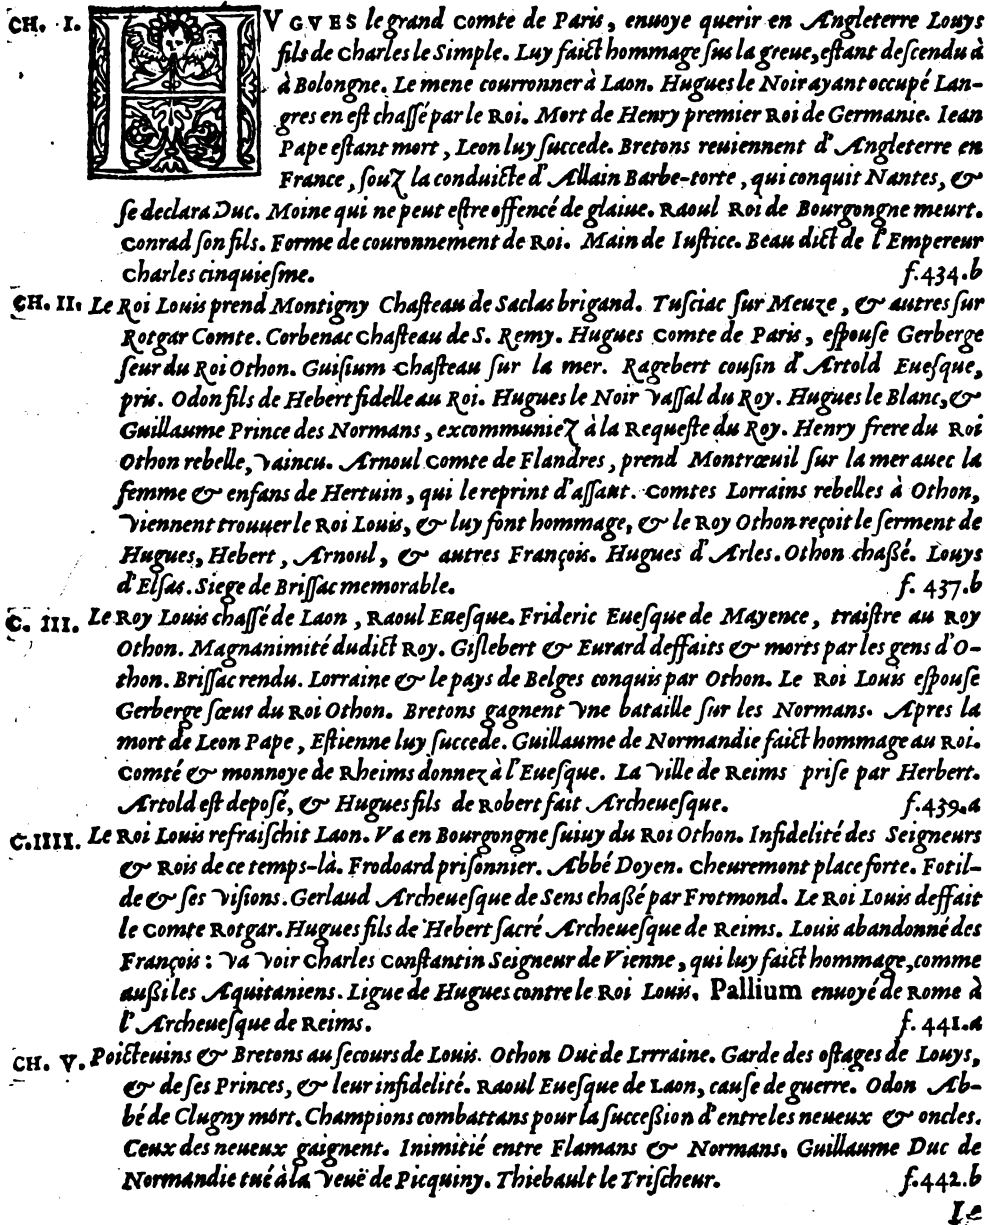 CH. I. HVGVES le grand Comte de Paris, enuoye querir en Angleterre Louys
fils de Charles le Simple. Luy faict hommage sus la greue, estant descendu à
à Bolongne. Le mene courronner à Laon. Hugues le Noir ayant occupé Lan-
gres en est chassé par le Roi. Mort de Henry premier Roi de Germanie. Iean
Pape estant mort, Leon luy succede. Bretons reuiennent d'Angleterre en
France, souz la conduicte d'Allain Barbe-torte, qui conquit Nantes, &
se declara Duc. Moine qui ne peut estre offencé de glaiue. Raoul Roi de Bourgongne meurt.
Conrad son fils. Forme de couronnement de Roi. Main de Iustice. Beau dict de l'Empereur
Charles cinquiesme. f.434.b
CH. II. Le Roi Louis prend Montigny Chasteau de Saclas brigand. Tusciac sur Meuze, & autres sur
Rotgar Comte. Corbenac Chasteau de S. Remy. Hugues Comte de Paris, espouse Gerberge
seur du Roi Othon. Guisium Chasteau sur la mer. Ragebert cousin d'Artold Euesque,
pris. Odon fils de Hebert fidelle au Roi. Hugues le Noir vassal du Roy. Hugues le Blanc, &
Guillaume Prince des Normans, excommuniez à la Requeste du Roy. Henry frere du Roi
Othon rebelle, vaincu. Arnoul Comte de Flandres, prend Montrœuil sur la mer auec la
femme & enfans de Hertuin, qui le reprint d'assaut. Comtes Lorrains rebelles à Othon,
viennent trouuer le Roi Louis, & luy font hommage, & le Roy Othon reçoit le serment de
Hugues, Hebert, Arnoul, & autres François. Hugues d'Arles. Othon chassé. Louys
d'Elsas. Siege de Brissac memorable. f. 437.b
C. III. Le Roy Louis chassé de Laon, Raoul Euesque. Frideric Euesque de Mayence, traistre au Roy
Othon. Magnanimité dudict Roy. Gislebert & Eurard deffaits & morts par les gens d'O-
thon. Brissac rendu. Lorraine & le pays de Belges conquis par Othon. Le Roi Louis espouse
Gerberge sœur du Roi Othon. Bretons gagnent vne bataille sur les Normans. Apres la
mort de Leon Pape, Estienne luy succede. Guillaume de Normandie faict hommage au Roi.
Comté & monnoye de Rheims donnez à l'Euesque. La ville de Reims prise par Herbert.
Artold est deposé, & Hugues fils de Robert fait Archeuesque. f.439.a
C.IIII. Le Roi Louis refraischit Laon. Va en Bourgongne suiuy du Roi Othon. Infidelité des Seigneurs
& Rois de ce temps-là. Frodoard prisonnier. Abbé Doyen. Cheuremont place forte. Fotil-
de & ses visions. Gerlaud Archeuesque de Sens chassé par Frotmond. Le Roi Louis deffait
le Comte Rotgar. Hugues fils de Hebert sacré Archeuesque de Reims. Louis abandonné des
François : va voir Charles Constantin Seigneur de Vienne, qui luy faict hommage, comme
aussi les Aquitaniens. Ligue de Hugues contre le Roi Louis. Pallium enuoyé de Rome à
l'Archeuesque de Reims. f. 441.a
CH. V. Poicteuins & Bretons au secours de Louis. Othon Duc de Lrrraine. Garde des ostages de Louys,
& de ses Princes, & leur infidelité. Raoul Euesque de Laon, cause de guerre. Odon Ab-
bé de Clugny mort. Champions combattans pour la succession d'entre les neueux & oncles.
Ceux des neueux gaignent. Inimitié entre Flamans & Normans. Guillaume Duc de
Normandie tué à la veuë de Picquiny. Thiebault le Trischeur. f.442.b
Le